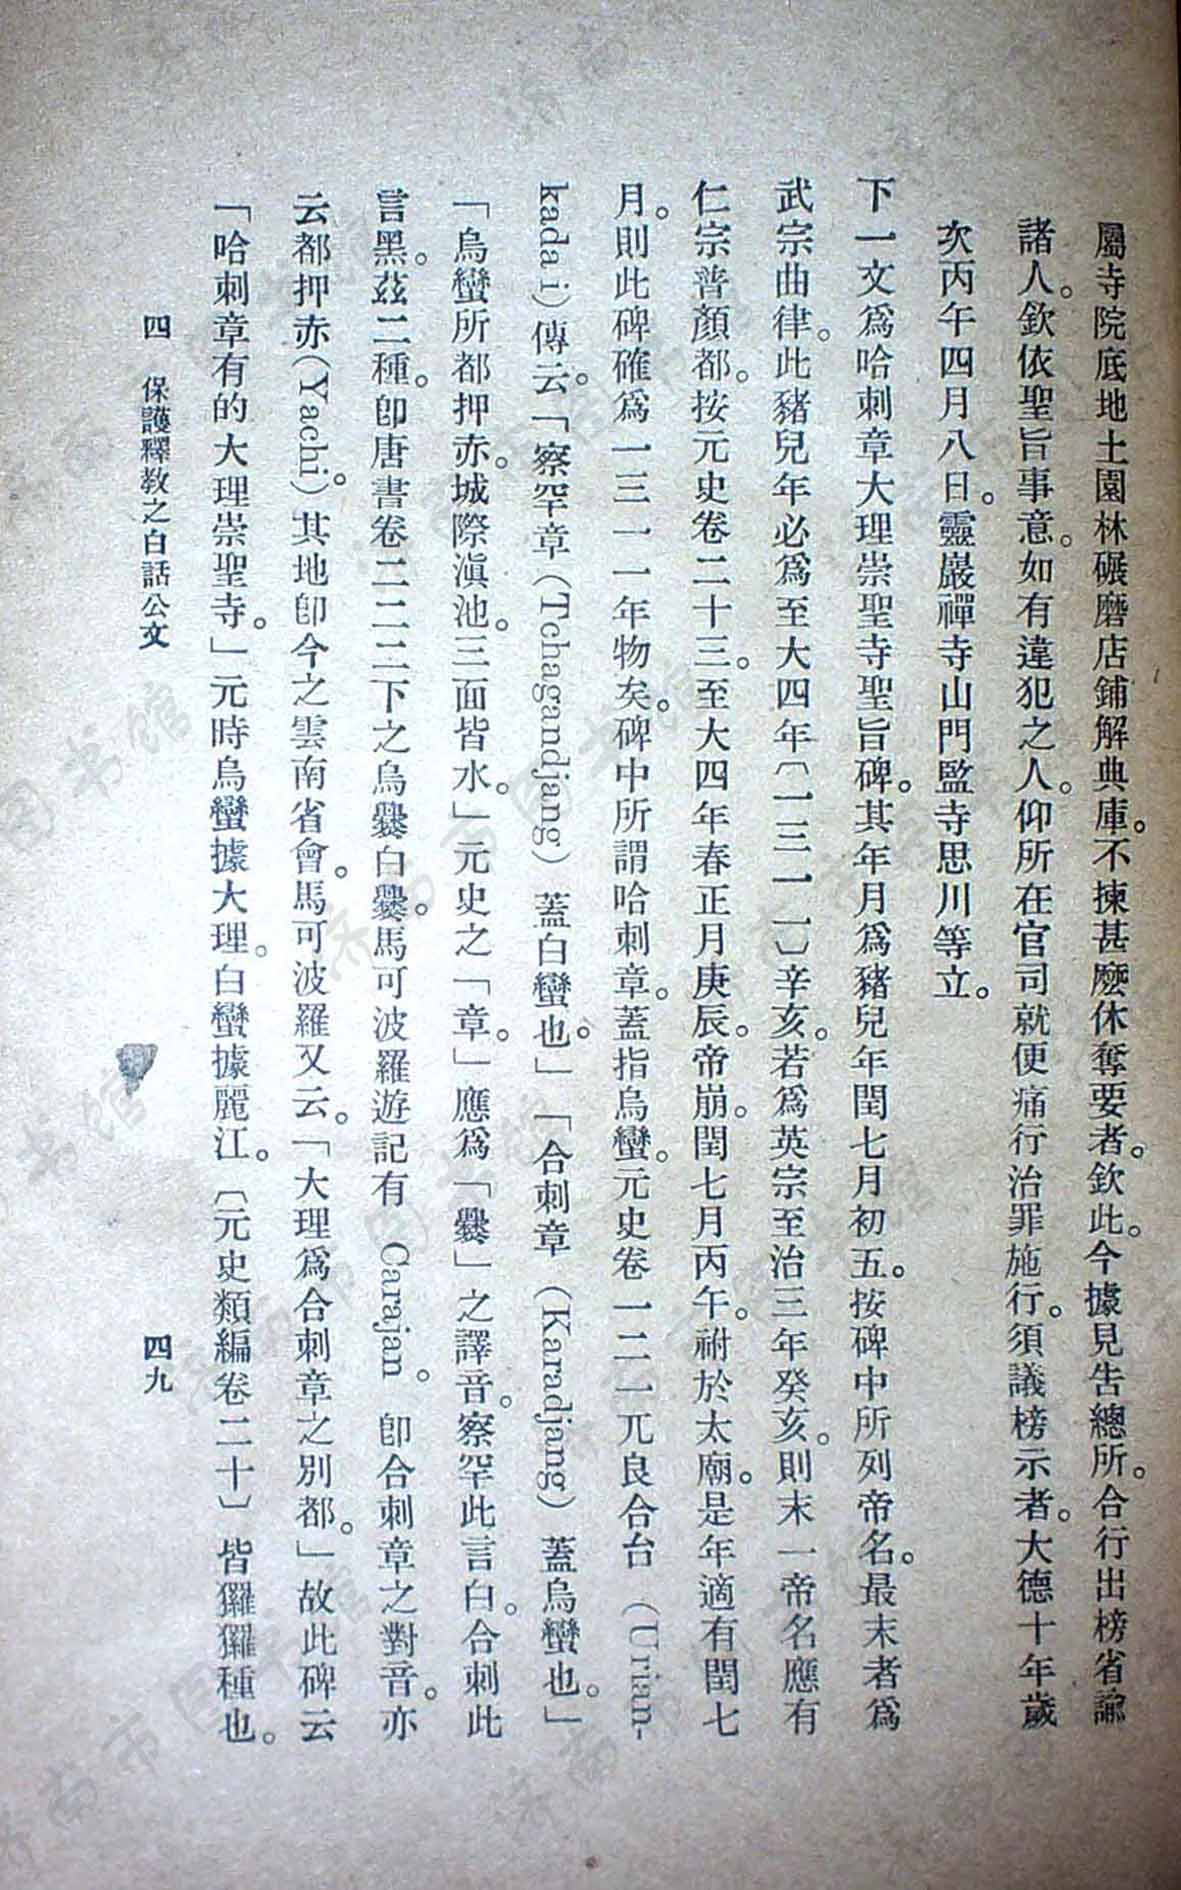 屬寺院底地土園林碾磨店鋪解典庫。不揀甚麽休奪要者。欽此。今據見告總所。合行出榜省諭
諸人。欽依聖旨事意。如有違犯之人。仰所在官司就便痛行治罪施行。須議榜示者。大德十年歲
次丙午四月八日。靈巖禪寺山門監寺思川等立。
下一文爲哈剌章大理崇聖寺聖旨碑。其年月爲豬兒年閏七月初五。按碑中所列帝名。最末者爲
武宗曲律。此豬兒年必爲至大四年〔一三一一〕辛亥。若爲英宗至治三年癸亥。則末一帝名應有
仁宗普顏都。按元史卷二十三。至大四年春正月庚辰。帝崩。閏七月丙午。祔於太廟。是年適有閏七
月。則此碑確爲一三一一年物矣。碑中所謂哈剌章。蓋指烏蠻。元史卷一二一兀良合台（Urian-
kadai）傳云。「察罕章（Tchagandjang）蓋白蠻也。」「合刺章（Karadjang）蓋烏蠻也。」
「烏蠻所都押赤。城際滇池。三面皆水。」元史之「章。」應爲「爨」之譯音。察罕此言白。合刺此
言黑。茲二種。卽唐書卷二二二下之烏爨白爨。馬可波羅遊記有 Carajan。卽合刺章之對音。亦
云都押赤（Yachi）。其地卽今之雲南省會。馬可波羅又云。「大理爲合刺章之別都。」故此碑云
「哈剌章有的大理崇聖寺。」元時烏蠻據大理。白蠻據麗江。〔元史類編卷二十〕皆玀玀種也。
四　保護釋教之白話公文
四九